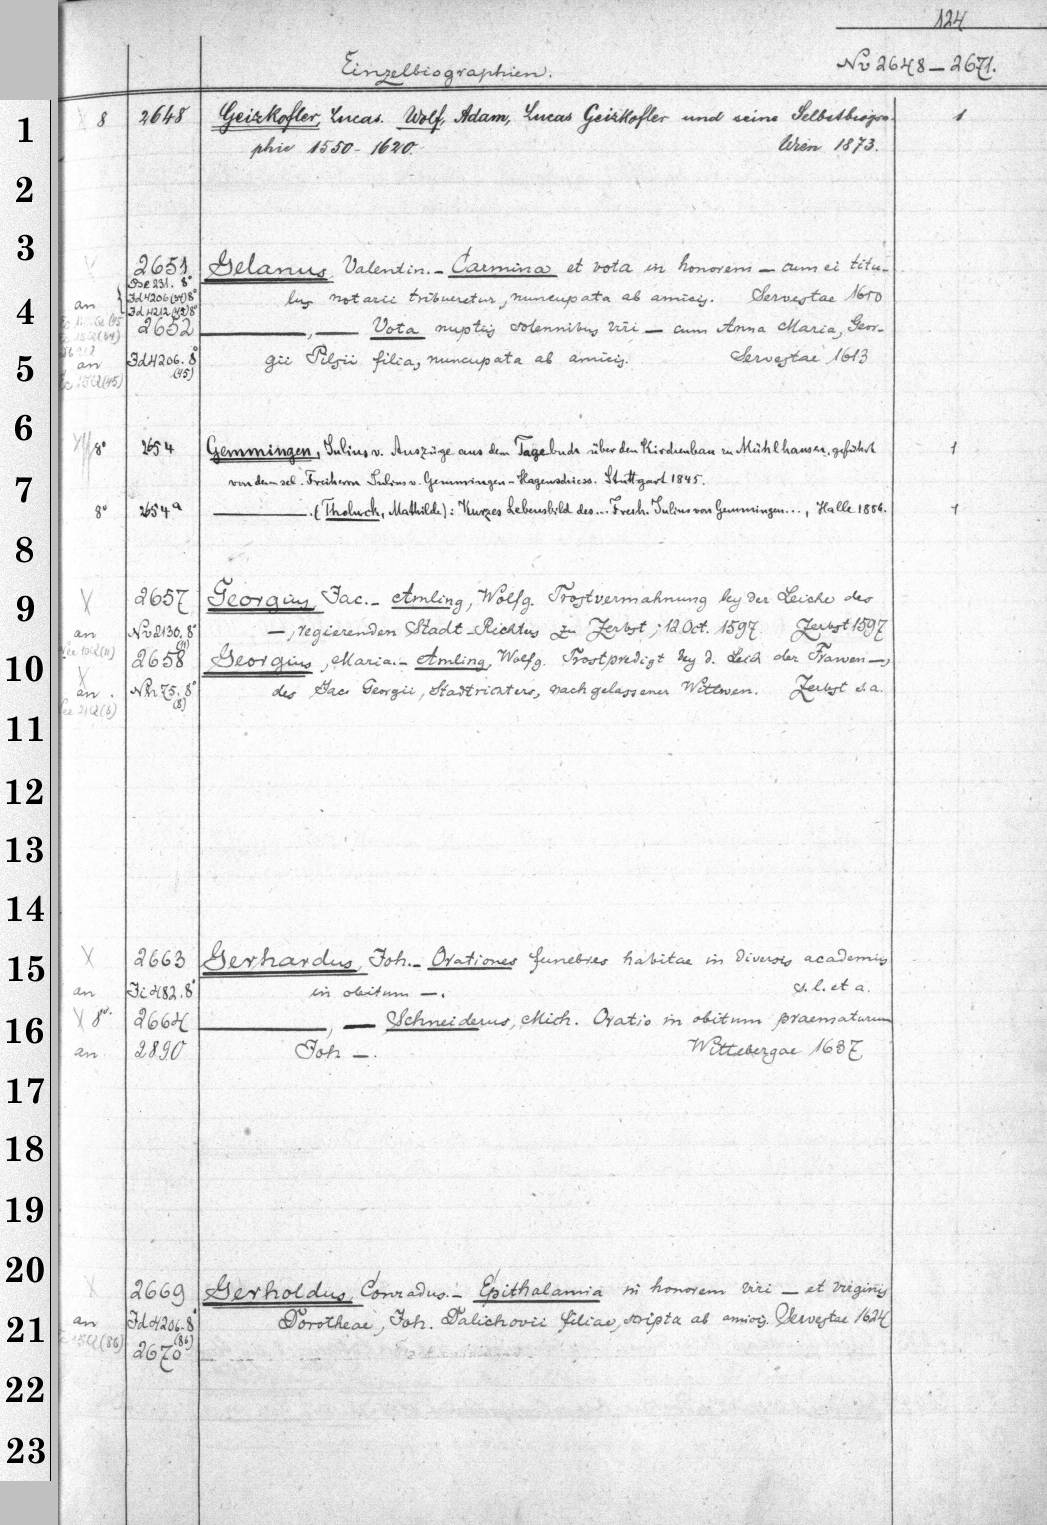 124
Einzelbiographien.
Nv 2648 – 2671.
1
8 2648 Geizkofler, Lucas. Wolf, Adam, Lucas Geizkofler und seine Selbstbiogra- 1
phie 1550 - 1620. Wien 1873.
2
3
2651 Gelanus, Valentin. – Carmina et vota in honorem – cum ei titu-
231. 8°
an Id 4206 (34) 8° lus notarii tribueretur, nuncupata ab amicis. Servestae 1610
4
Id 4212 (42) 8°
2652 –––, – Vota nuptiis solennibus viri – cum Anna Maria, Geor-
5
an Id 4206. 8° gii Pilsii filia, nuncupata ab amicis. Servestae 1613
(45)
6
8° 2654 Gemmingen, Julius v. Auszüge aus dem Tagebuch über den Kirchenbau zu Mühlhausen, geführt 1
7
von dem sel. Freiherrn Julius v. Gemmingen-Hagenschiess. Stuttgart 1845.
8° 2654a –––. (Tholuck, Mathilde): Kurzes Lebensbild des ... Freih. Julius von Gemmingen ..., Halle 1856. 1
8
9
X 2657 Georgius, Jac. – Amling, Wolfg. Trostvermahnung bey der Leiche des
an Nv 2130. 8° –, regierenden Stadt-Richters zu Zerbst, 12 Oct. 1597. Zerbst 1597
10
2658 Georgius, Maria. – Amling, Wolfg. Trostpredigt bey d. Leich der Frawen –,
X
an Nh 75. 8° des Jac. Georgii, Stadtrichters, nachgelassener Wittwen. Zerbst s. a.
(8)
11
12
13
14
15
X 2663 Gerhardus, Joh. – Orationes funebres habitae in diversis academiis
an Ji 482. 8° in obitum –. s. l. et a.
16
X 8°. 2664 –––, – Schneiderus, Mich. Oratio in obitum praematurum
an 2890 Joh –. Wittebergae 1637
17
18
19
20
X 2669 Gerholdus, Conradus. – Epithalamia in honorem viri – et virginis
21
an Id 4206. 8° Dorotheae, Joh. Dalichovii filiae, scripta ab amicis. Servestae 1624
(86)
2670
22
23